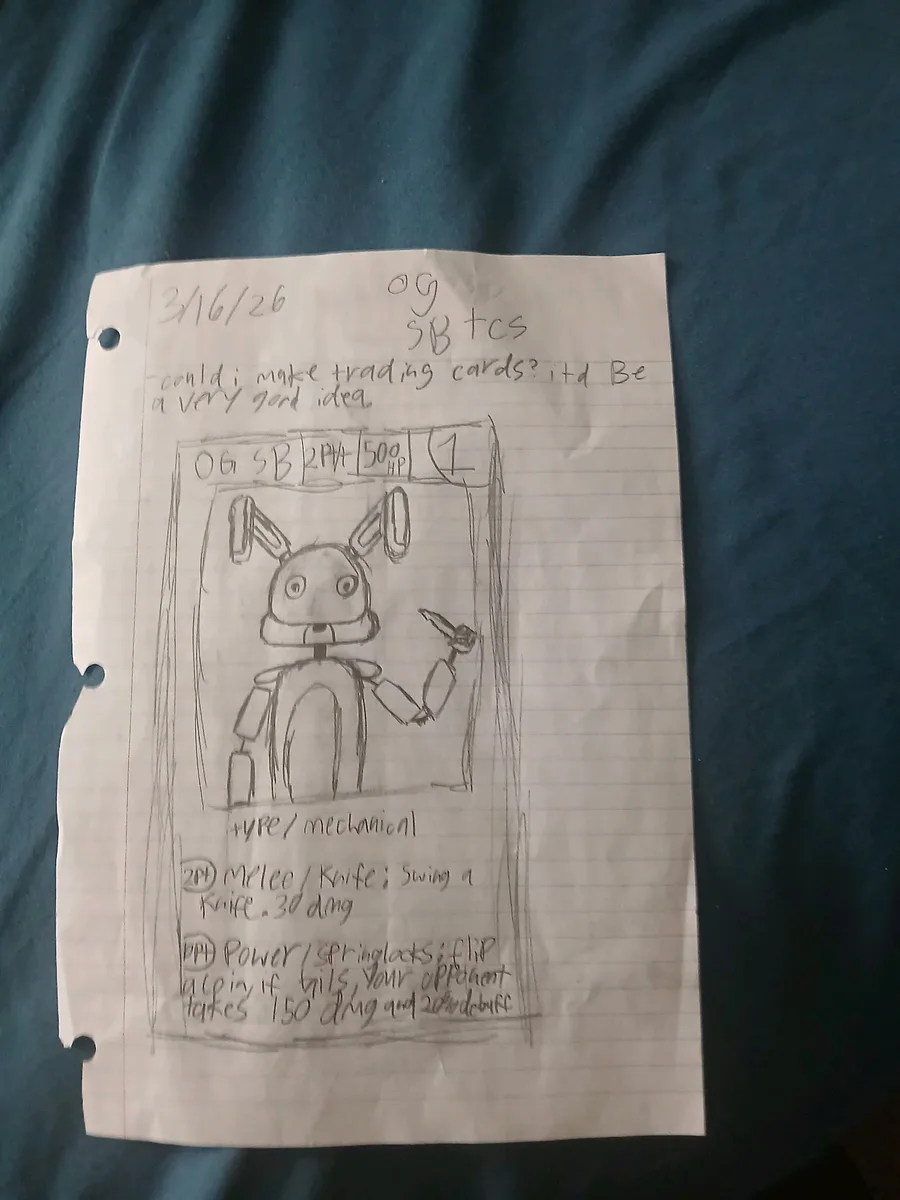 3/16/26
OG
SB tcs
-could i make trading cards? itd Be
a very good idea.
OG SB 500 HP 1
type/mechanical
2Pt Melee/Knife; Swing a
Knife. 30 dmg
Power/springlocks; flip
if tails, your opponent
takes 150 dmg and 20% debuff